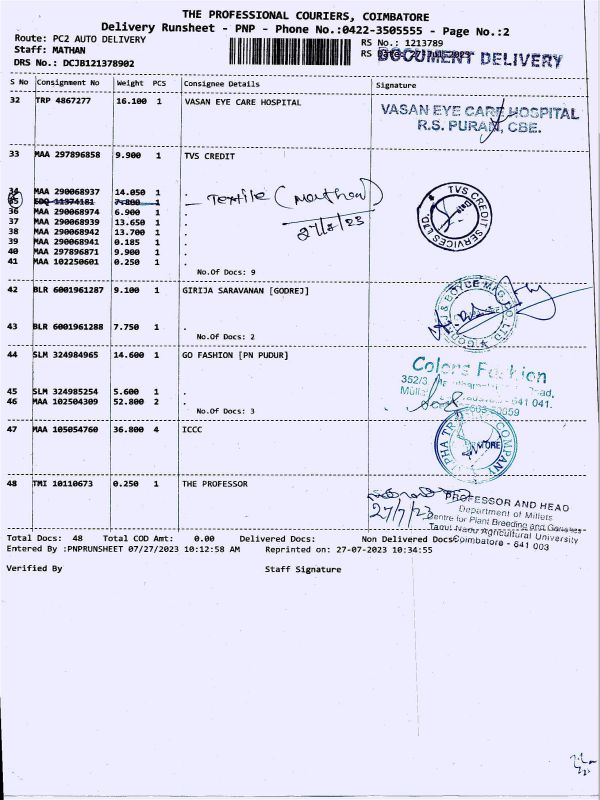 THE PROFESSIONAL COURIERS, COIMBATORE
Delivery Runsheet - PNP - Phone No.:0422-3505555 - Page No.:2
Route: PC2 AUTO DELIVERY
RS No.: 1213789
Staff: MATHAN
DOCUMENT DELIVERY
DRS No.: DCJB121378902
S No Consignment No Weight PCS Consignee Details Signature
32 TRP 4867277 16.100 1 VASAN EYE CARE HOSPITAL
VASAN EYE CARE HOSPITAL
R.S. PURAM, CBE.
33 MAA 297896858 9.900 1 TVS CREDIT
34 MAA 290068937 14.050 1 .
35 EDQ 11374181 7.800 1 - Textile (Mathan)
36 MAA 290068974 6.900 1 .
37 MAA 290068939 13.650 1 .
27/7/23
38 MAA 290068942 13.700 1 .
39 MAA 290068941 0.185 1 .
40 MAA 297896871 9.900 1 .
41 MAA 102250601 0.250 1 .
TVS CREDIT SERVICES LTD
No.Of Docs: 9
42 BLR 6001961287 9.100 1 GIRIJA SARAVANAN [GODREJ]
43 BLR 6001961288 7.750 1 .
No.Of Docs: 2
44 SLM 324984965 14.600 1 GO FASHION [PN PUDUR]
Colors Fashion
352/3
641 041.
45 SLM 324985254 5.600 1 .
46 MAA 102504309 52.800 2 .
No.Of Docs: 3
47 MAA 105054760 36.800 4 ICCC
COMPANY
48 TMI 10110673 0.250 1 THE PROFESSOR
27/7/23
PROFESSOR AND HEAD
Department of Millets
Centre for Plant Breeding and Genetics
Tamil Nadu Agricultural University
Coimbatore - 641 003
Total Docs: 48 Total COD Amt: 0.00 Delivered Docs: Non Delivered Docs:
Entered By :PNPRUNSHEET 07/27/2023 10:12:58 AM Reprinted on: 27-07-2023 10:34:55
Verified By Staff Signature